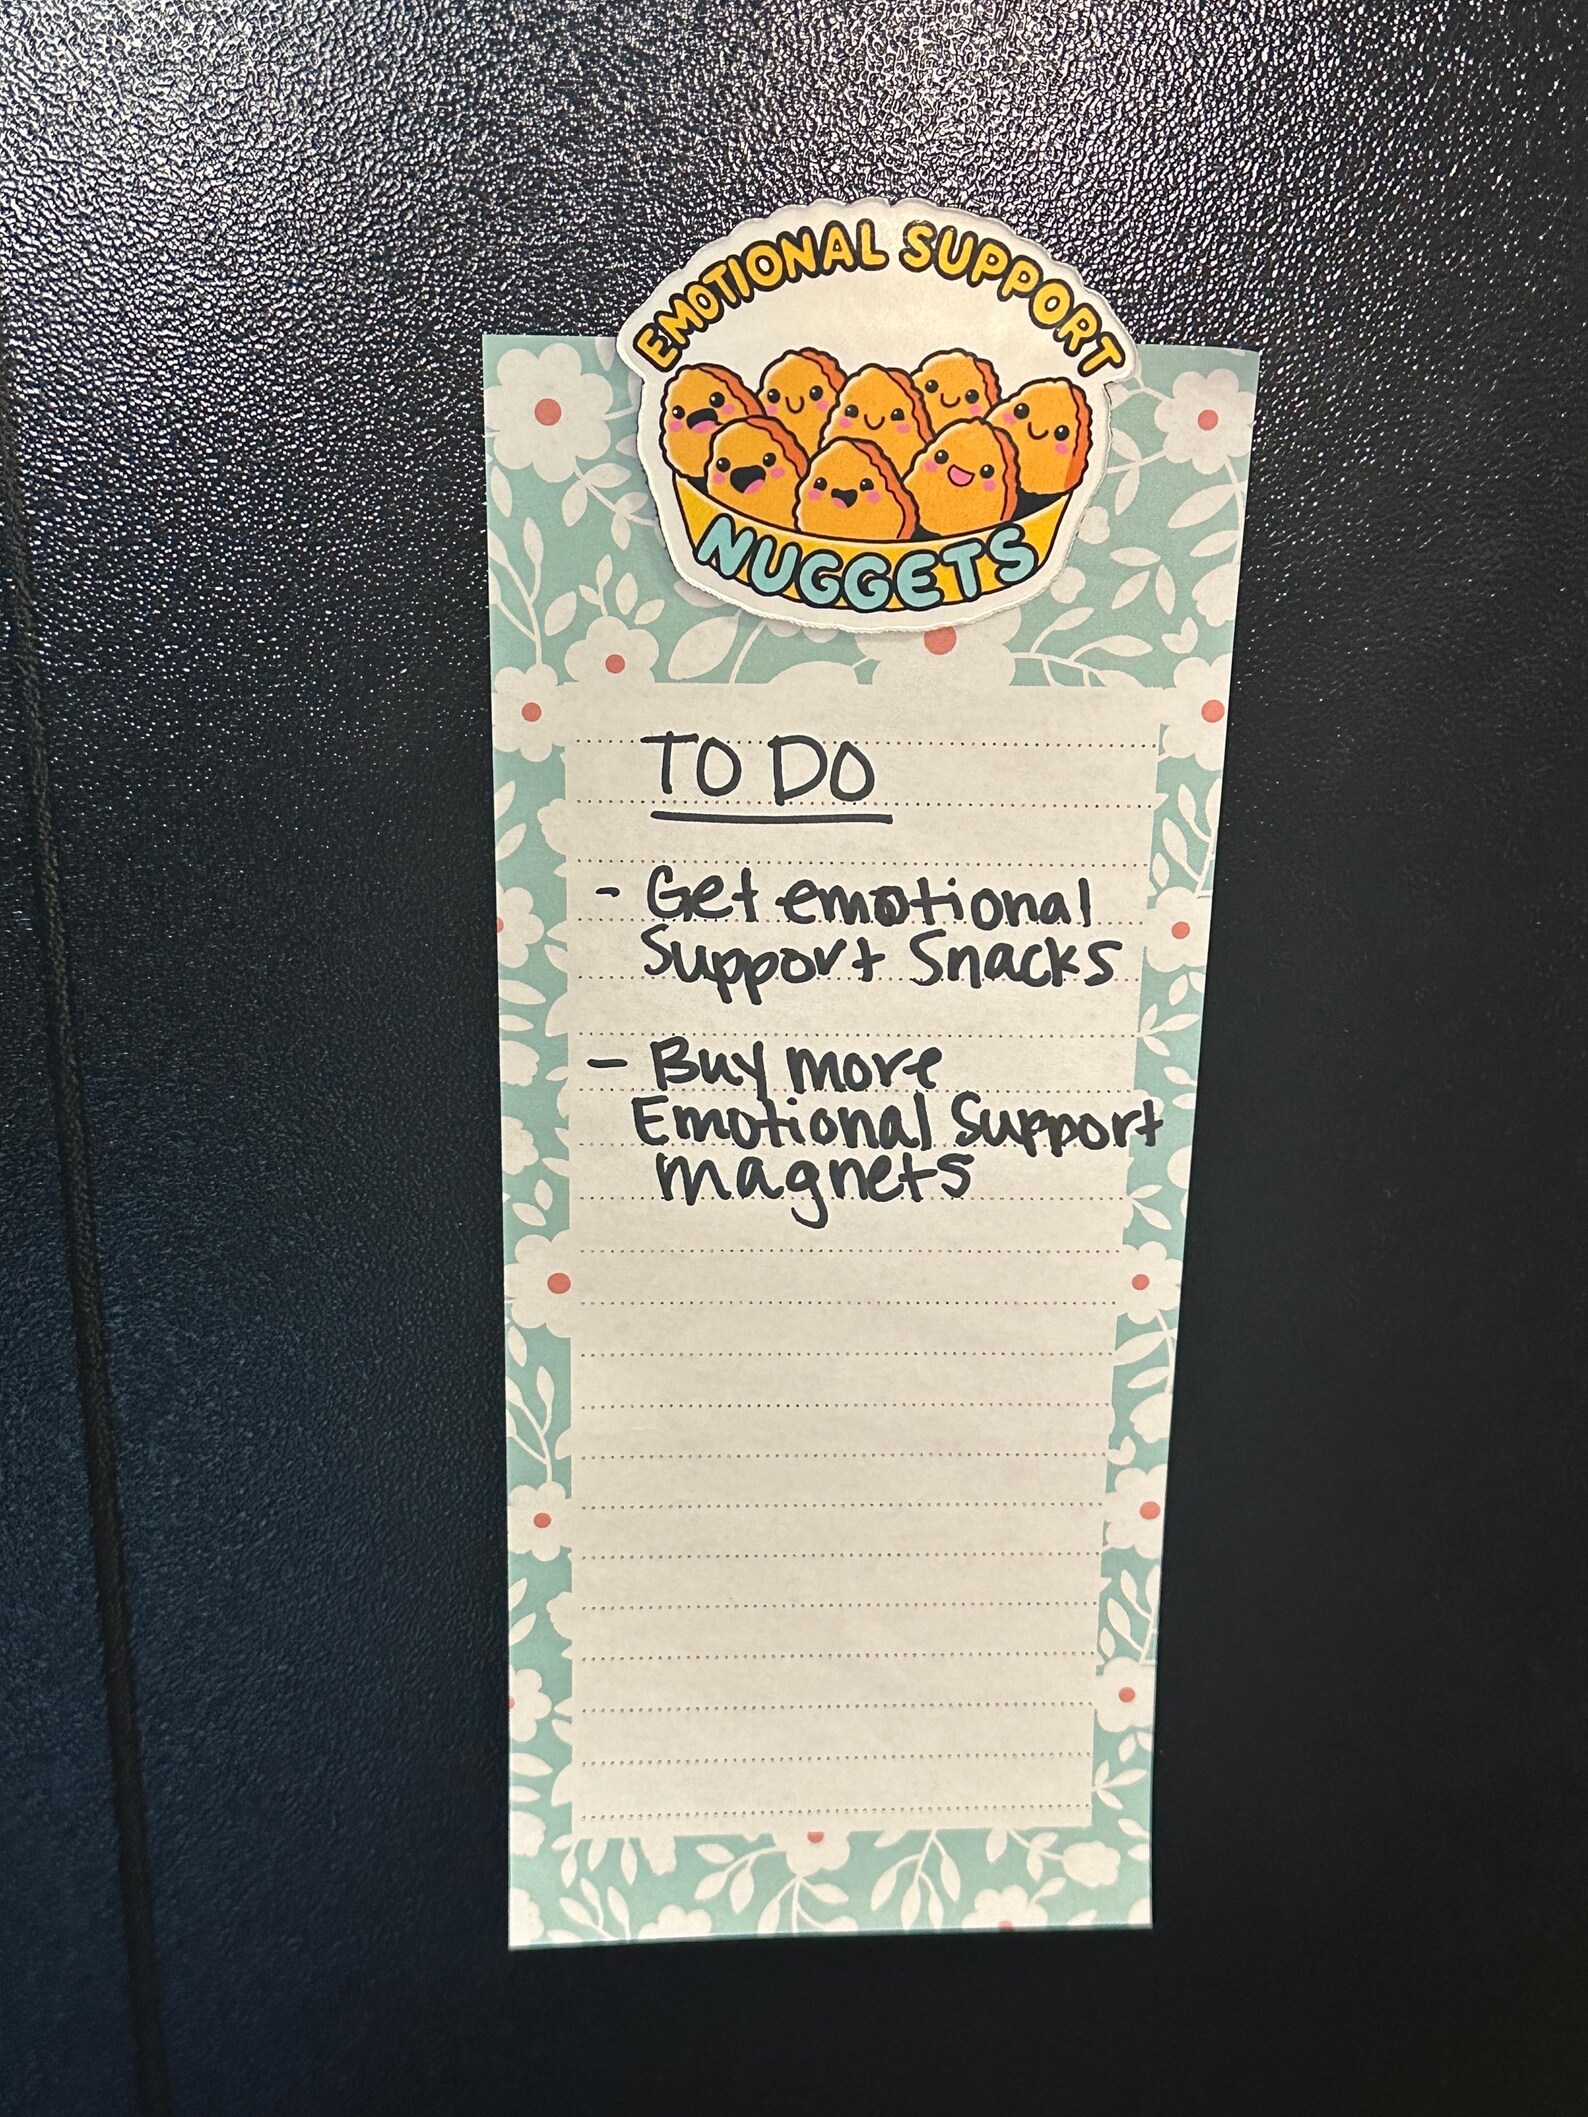 EMOTIONAL SUPPORT
NUGGETS
TO DO
- Get emotional
Support Snacks
- Buy more
Emotional Support
magnets